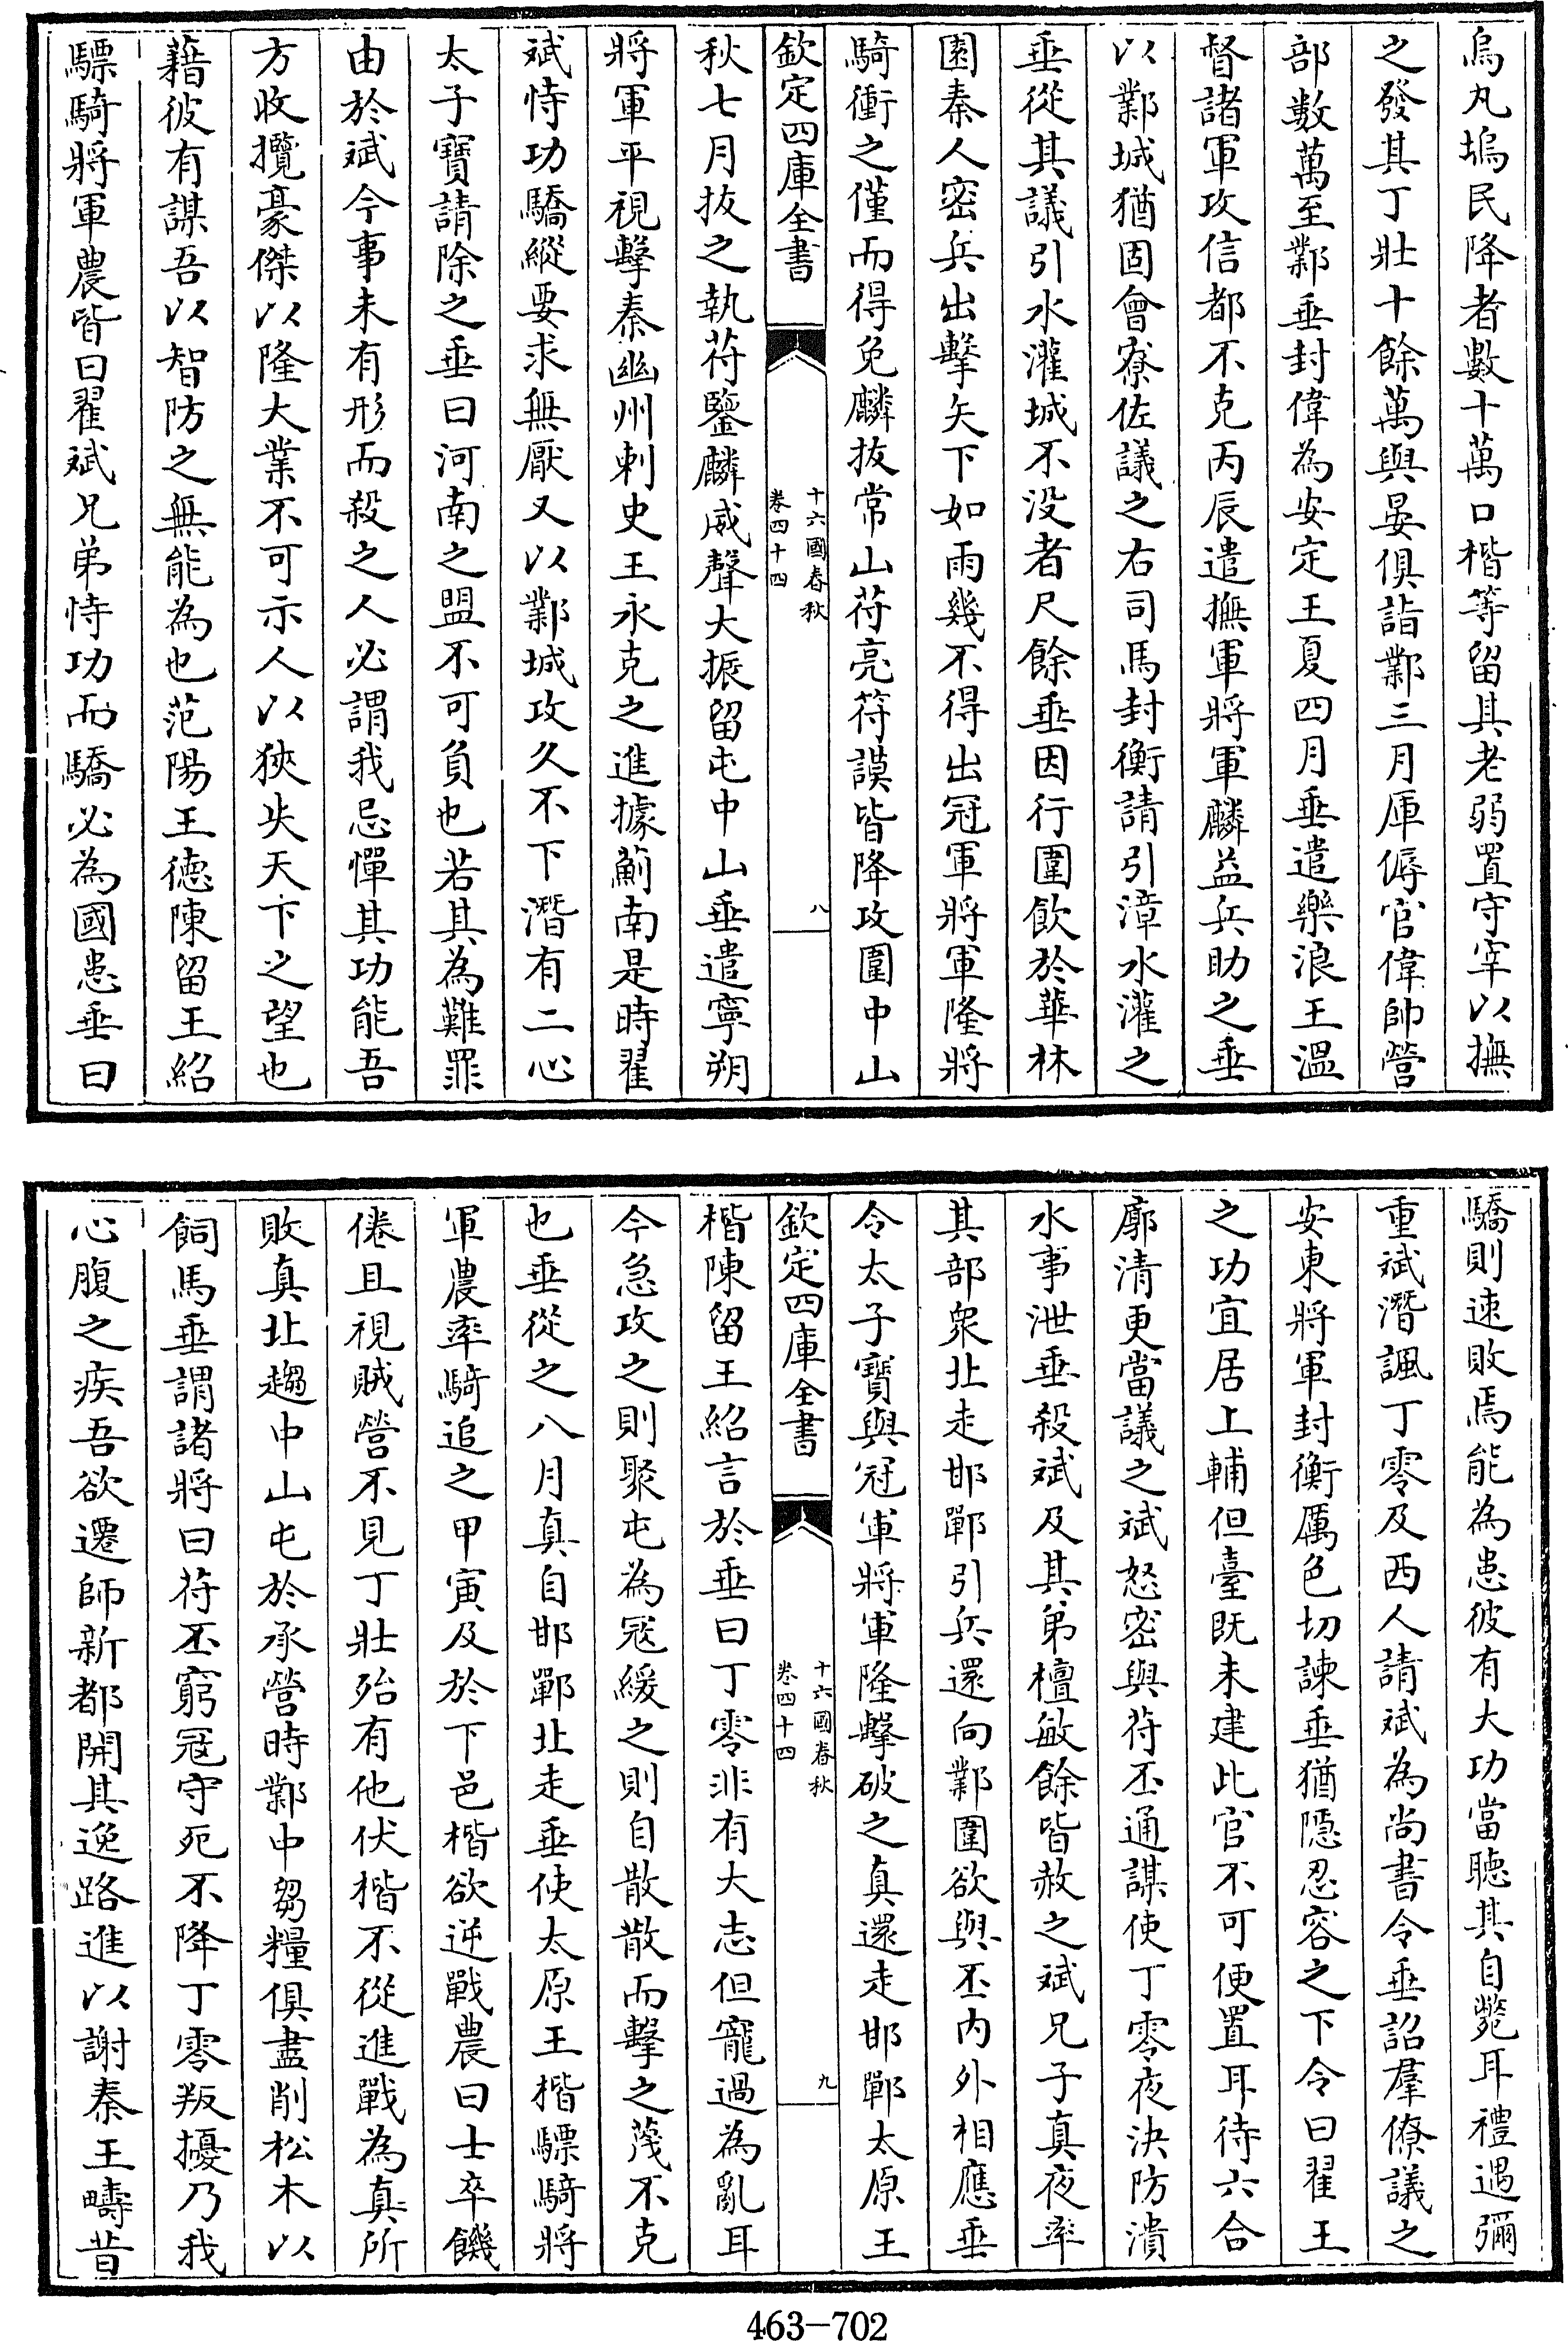 烏丸塢民降者數十萬口楷等留其老弱置守宰以撫
之發其丁壯十餘萬與晏俱詣鄴三月庫傉官偉帥營
部數萬至鄴垂封偉為安定王夏四月垂遣樂浪王溫
督諸軍攻信都不克丙辰遣撫軍將軍麟益兵助之垂
以鄴城猶固會寮佐議之右司馬封衡請引漳水灌之
垂從其議引水灌城不没者尺餘垂因行圍飲於華林
園秦人密兵出擊矢下如雨幾不得出冠軍將軍隆將
騎衝之僅而得免麟拔常山苻亮苻謨皆降攻圍中山
欽定四庫全書
十六國春秋
卷四十四
八
秋七月拔之執苻鑒麟威聲大振留屯中山垂遣寧朔
將軍平視擊秦幽州刺史王永克之進據薊南是時翟
斌恃功驕縱要求無厭又以鄴城攻久不下潛有二心
太子寶請除之垂曰河南之盟不可負也若其為難罪
由於斌今事未有形而殺之人必謂我忌憚其功能吾
方收攬豪傑以隆大業不可示人以狹失天下之望也
藉彼有謀吾以智防之無能為也范陽王德陳留王紹
驃騎將軍農皆曰翟斌兄弟恃功而驕必為國患垂曰
驕則速敗焉能為患彼有大功當聽其自斃耳禮遇彌
重斌潛諷丁零及西人請斌為尚書令垂詔羣僚議之
安東將軍封衡厲色切諫垂猶隱忍容之下令曰翟王
之功宜居上輔但臺既未建此官不可便置耳待六合
廓清更當議之斌怒密與苻丕通謀使丁零夜決防潰
水事泄垂殺斌及其弟檀敏餘皆赦之斌兄子真夜率
其部衆北走邯鄲引兵還向鄴圍欲與丕内外相應垂
令太子寶與冠軍將軍隆擊破之真還走邯鄲太原王
欽定四庫全書
十六國春秋
卷四十四
九
楷陳留王紹言於垂曰丁零非有大志但寵過為亂耳
今急攻之則聚屯為寇緩之則自散散而擊之蔑不克
也垂從之八月真自邯鄲北走垂使太原王楷驃騎將
軍農率騎追之甲寅及於下邑楷欲逆戰農曰士卒饑
倦且視賊營不見丁壯殆有他伏楷不從進戰為真所
敗真北趨中山屯於承營時鄴中芻糧俱盡削松木以
飼馬垂謂諸將曰苻丕窮寇守死不降丁零叛擾乃我
心腹之疾吾欲遷師新都開其逸路進以謝秦王疇昔
463-702